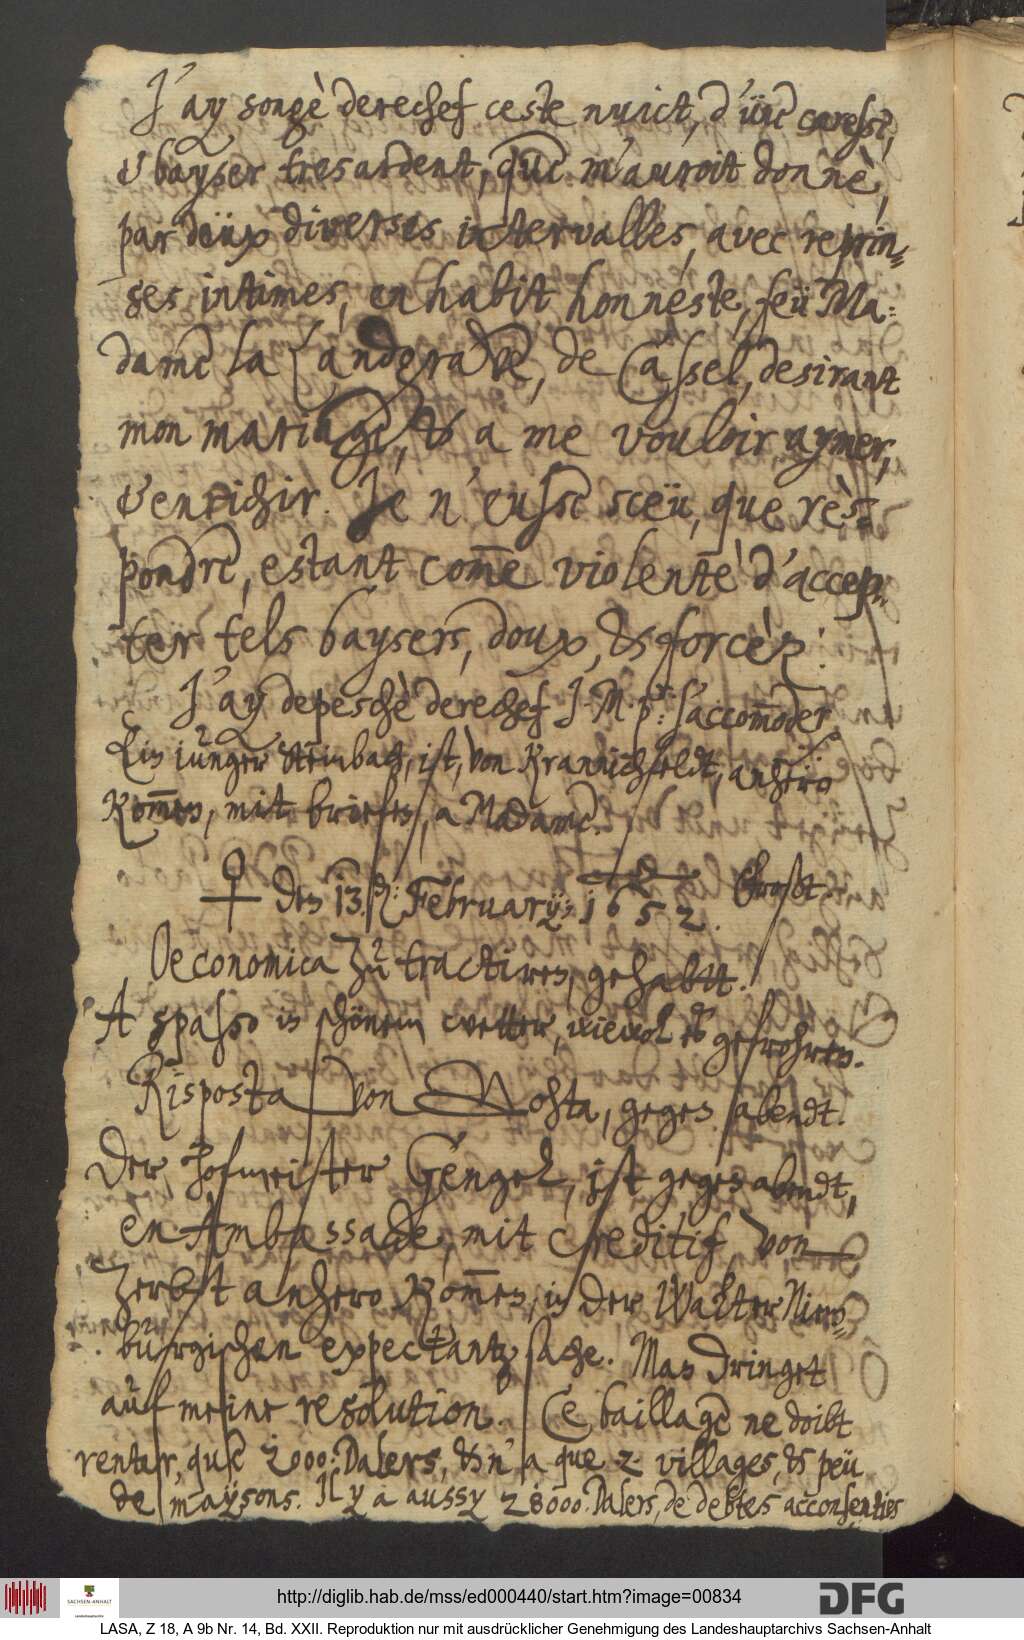 J'ay songè derechef ceste nuict, d'üne caresse,
& bayser tresardent, que m'auroit donnè,
par deüx diverses intervalles, avec reprin-
ses intimes, en habit honneste, feü Ma-
dame la Landgrave, de Cassel, desirant
mon mariage, & a me vouloir aymer,
& enrichir. Je n'eusse sceü, que rès-
pondre, estant com̄e violentè d'accep-
ter tels baysers, doux, & forcèz.
J'ay depeschè derechef J. M. pr: s'accom̄oder
Ein iunger Steinbach, ist, von Krannichfeldt, anhero
Kom̄en, mit briefen, a Madame.
den 13. Februarÿ; 1652.
Oeconomica zu tractiren, gehabtt.
A spasso in schönem wetter, wiewol es gefrohren.
Risposta von Nosta, gegen abendt.
Der Hofmeister Gengel, ist gegen abendt,
en Ambassade, mit Creditif von
Zerbst anhero Kom̄en, in der Walter Nien-
burgischen expectantz sache. Man dringet
auf meine resolution. Ce baillage ne doibt
renter, que 2000: Dalers, & n'a que 2 villages, & peü
de maÿsons. Il y a aussy 28000. Dalers, de debtes acconsenties
http://diglib.hab.de/mss/ed000440/start.htm?image=00834
SACHSEN-ANHALT
DFG
LASA, Z 18, A 9b Nr. 14, Bd. XXII. Reproduktion nur mit ausdrücklicher Genehmigung des Landeshauptarchivs Sachsen-Anhalt